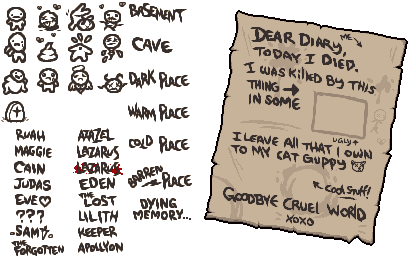 BASEMENT
CAVE
DARK PLACE
WARM PLACE
COLD PLACE
BARREN PLACE
DYING
MEMORY...
RUAH
MAGGIE
CAIN
JUDAS
EVE♡
???
SAMY
THE
FORGOTTEN
AZAZEL
LAZARUS
LAZARUS
EDEN
THE
LOST
LILITH
KEEPER
APOLLYON
DEAR DIARY,
ME
TODAY I DIED.
I WAS KILLED BY THIS
THING →
IN SOME
UGLY↑
I LEAVE ALL THAT I OWN
TO MY CAT GUPPY
↖COOL STUFF!
GOODBYE CRUEL WORLD
XOXO